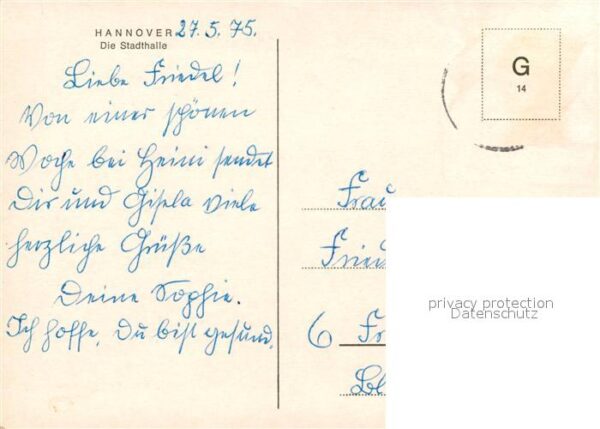 HANNOVER 27.5.75.
Die Stadthalle
Liebe Friedel!
Von einer schönen
Woche bei Heini sendet
Dir und Gisela viele
herzliche Grüße
Deine Sophie.
Ich hoffe, Du bist gesund.
G
14
Frau
6
privacy protection
Datenschutz